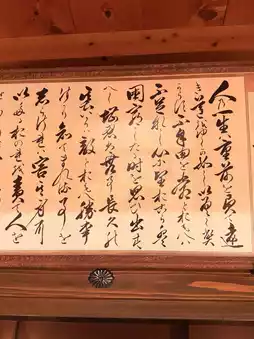 人の一生は重荷を負て遠
き道をゆくか如しいそくへ
からす不自由を常とおもへハ
不足なし心に望おこらハ
困窮したる時を思ひ出す
へし堪忍ハ無事長久の
基いかりハ敵とおもへ勝事
はかり知てまくる事を
しらされハ害其身に
いたるおのれを責て人を